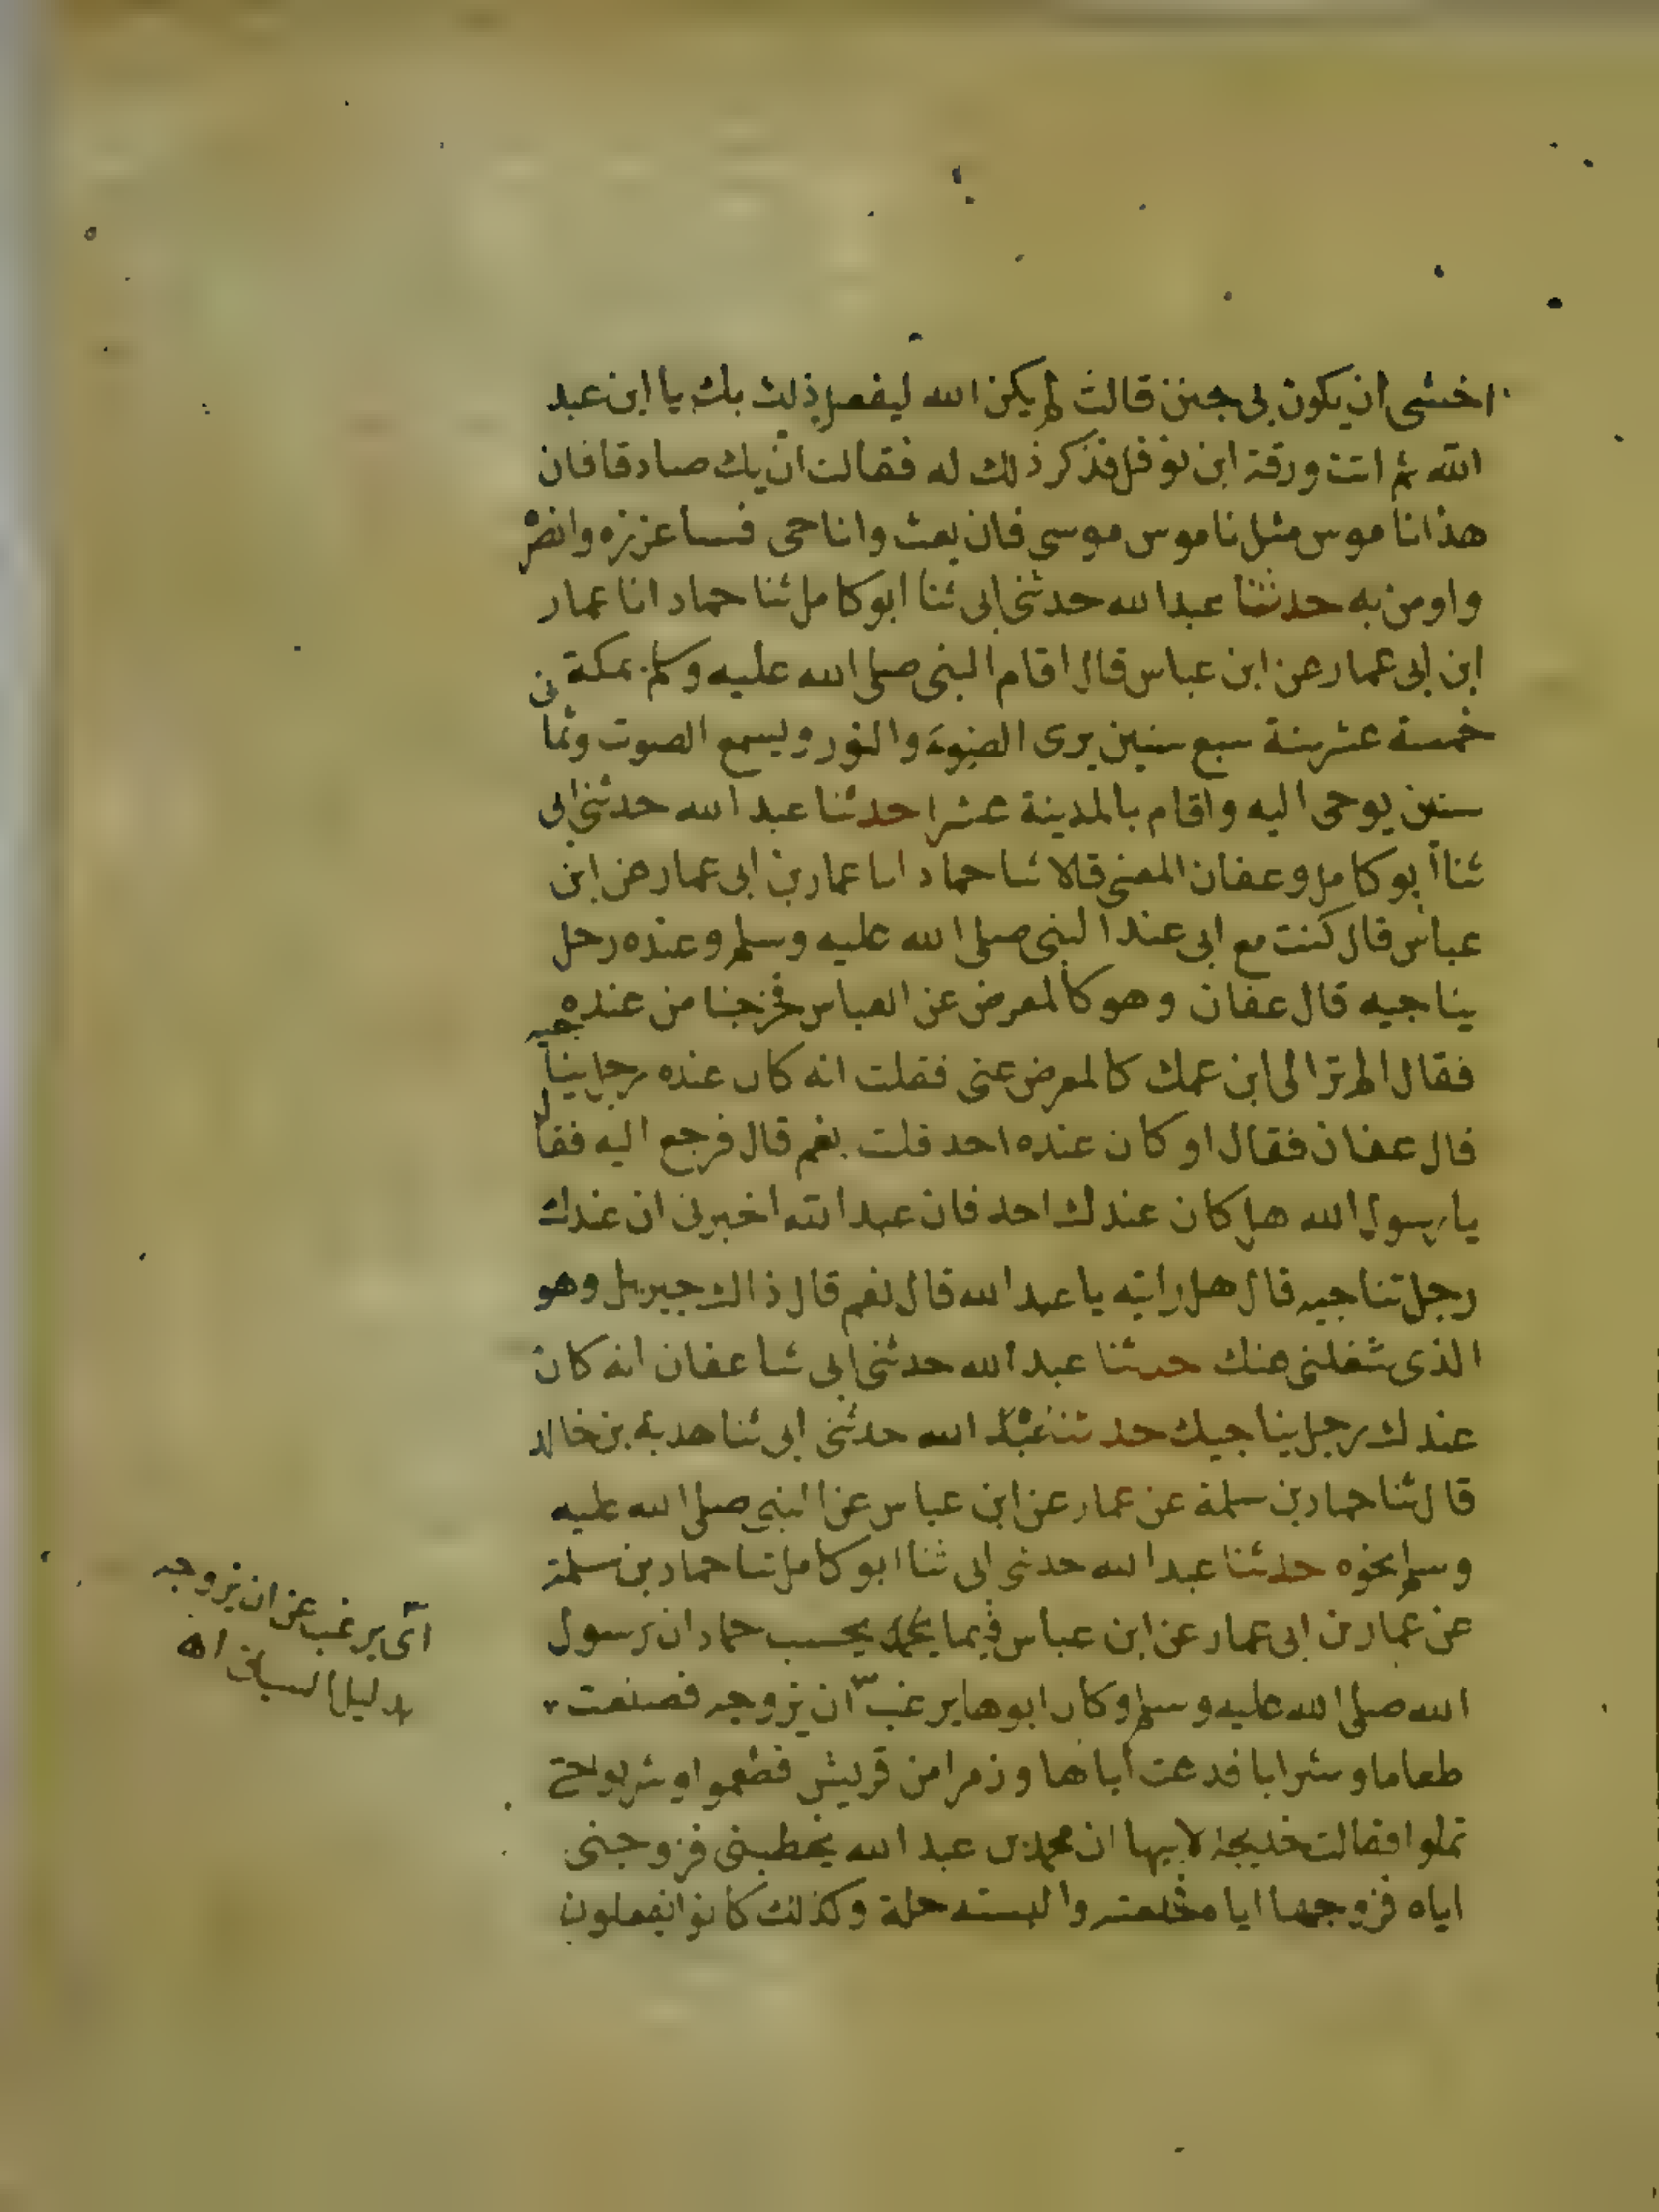 اخشى ان يكون بى جنن قالت لم يكن الله ليفعل ذلك بك يا ابن عبد
الله ثم اتت ورقة ابن نوفل فذكر ذلك له فقالت ان يك صادقا فان
هذا ناموس مثل ناموس موسى فان بعث وانا حى فساعززه وانصره
واومن به حدثنا عبد الله حدثنى ابى ثنا ابو كامل ثنا حماد انا عمار
ابن ابى عمار عن ابن عباس قال اقام النبى صلى الله عليه وسلم بمكة
خمسة عشر سنة سبع سنين يرى الضوء والنور ويسمع الصوت وثمانى
سنين يوحى اليه واقام بالمدينة عشرا حدثنا عبد الله حدثنى ابى
ثنا ابو كامل وعفان المعنى قالا ثنا حماد انا عمار بن ابى عمار عن ابن
عباس قال كنت مع ابى عند النبى صلى الله عليه وسلم وعنده رجل
يناجيه قال عفان وهو كالمعرض عن العباس فخرجنا من عنده
فقال الم تر الى ابن عمك كالمعرض عنى فقلت انه كان عنده رجل يناجيه
قال عفان فقال او كان عنده احد قلت نعم قال فرجع اليه فقال
يا رسول الله هل كان عندك احد فان عبد الله اخبرنى ان عندك
رجل تناجيه قال هل رايته يا عبد الله قال نعم قال ذاك جبريل وهو
الذى شغلنى عنك حدثنا عبد الله حدثنى ابى ثنا عفان انه كان
عندك رجل يناجيك حدثنا عبد الله حدثنى ابى ثنا هدبة بن خالد
قال ثنا حماد بن سلمة عن عمار عن ابن عباس عن النبى صلى الله عليه
وسلم نحوه حدثنا عبد الله حدثنى ابى ثنا ابو كامل ثنا حماد بن سلمة
عن عمار بن ابى عمار عن ابن عباس فيما يحسب حماد ان رسول
الله صلى الله عليه وسلم وكان ابوها يرغب ان يزوجه فصنعت
طعاما وشرابا فدعت اباها وزمرا من قريش فطعموا وشربوا حتى
ثملوا فقالت خديجة لابيها ان محمد بن عبد الله يخطبنى فزوجنى
اياه فزوجها اياه فخلعته والبسته حلة وكذلك كانوا يفعلون
اى يرغب عن ان يزوجه
بدليل السياق اه